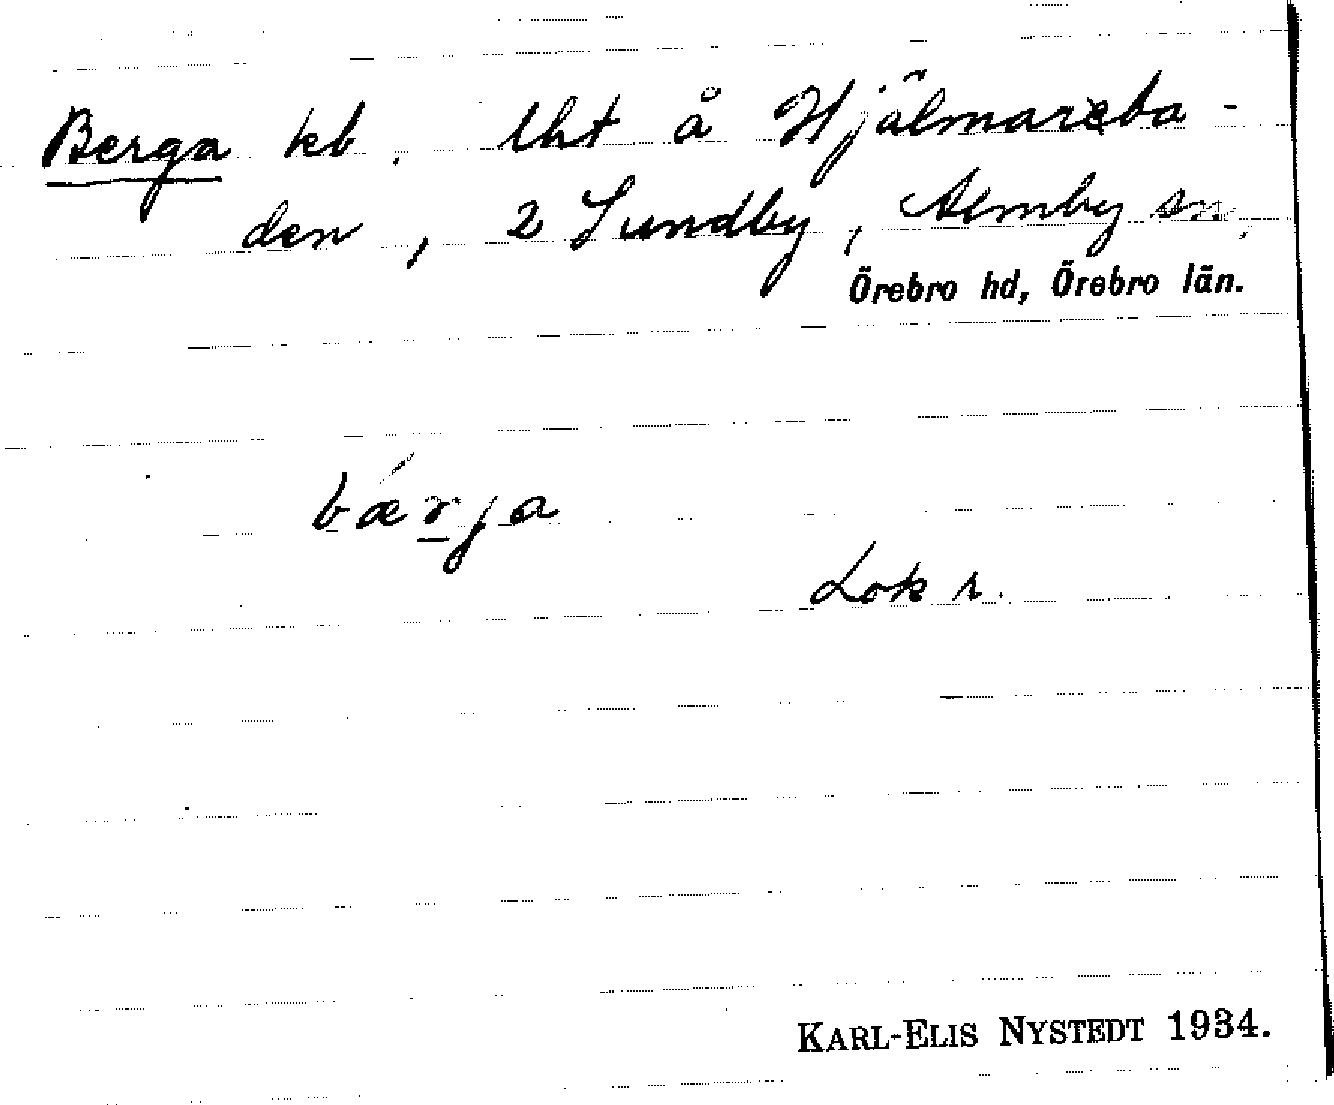 Berga kb. lht å Hjälmareba-
den, 2 Sundby, Almby sn,
Örebro hd, Örebro län.
bǽrja
Lok r.
KARL-ELIS NYSTEDT 1934.